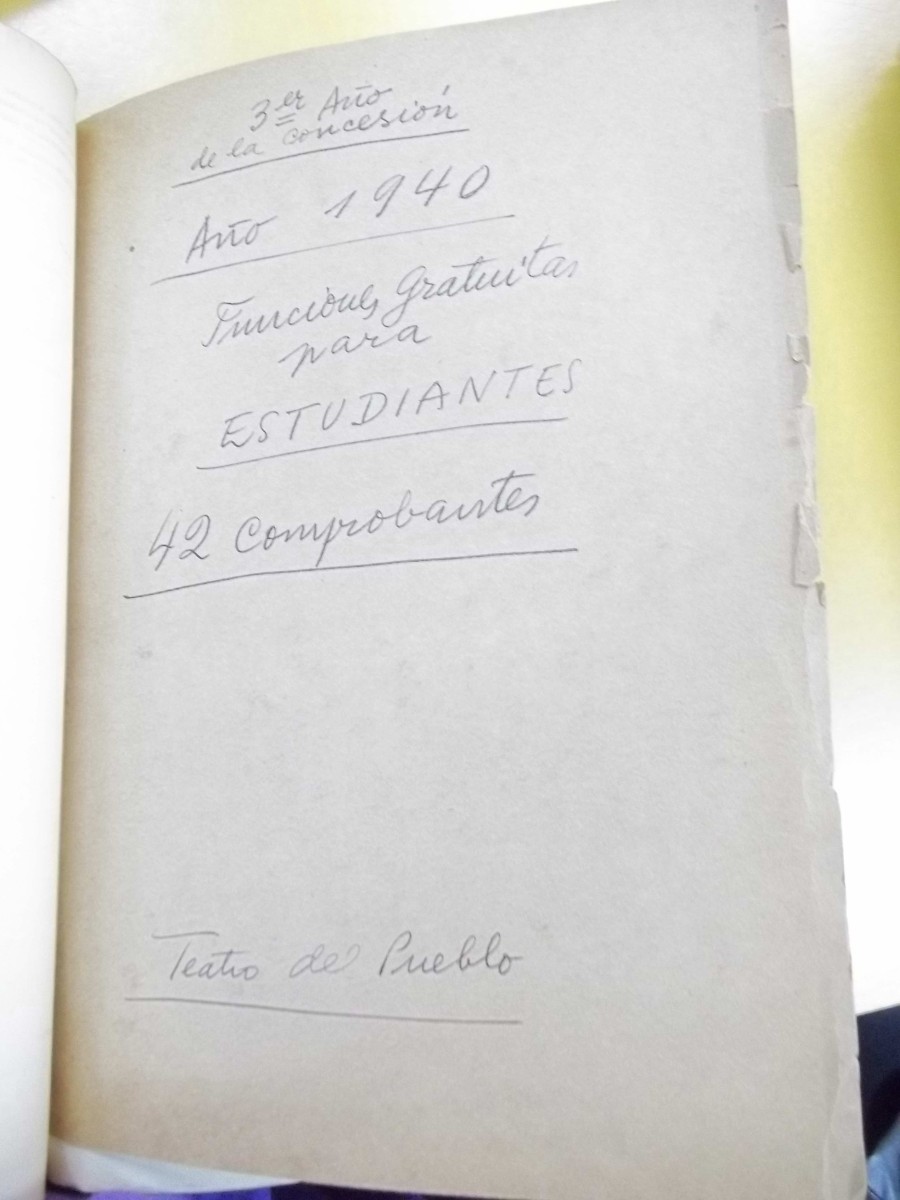 3er Año
de la Concesión
Año 1940
Funciones Gratuitas
para
ESTUDIANTES
42 Comprobantes
Teatro del Pueblo